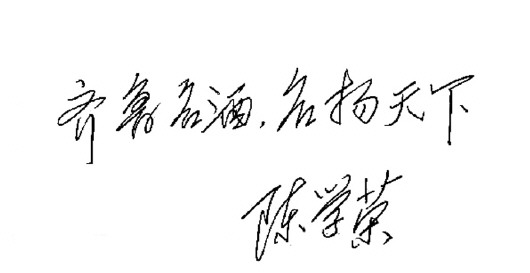 齐鲁名酒,名扬天下
陈学荣